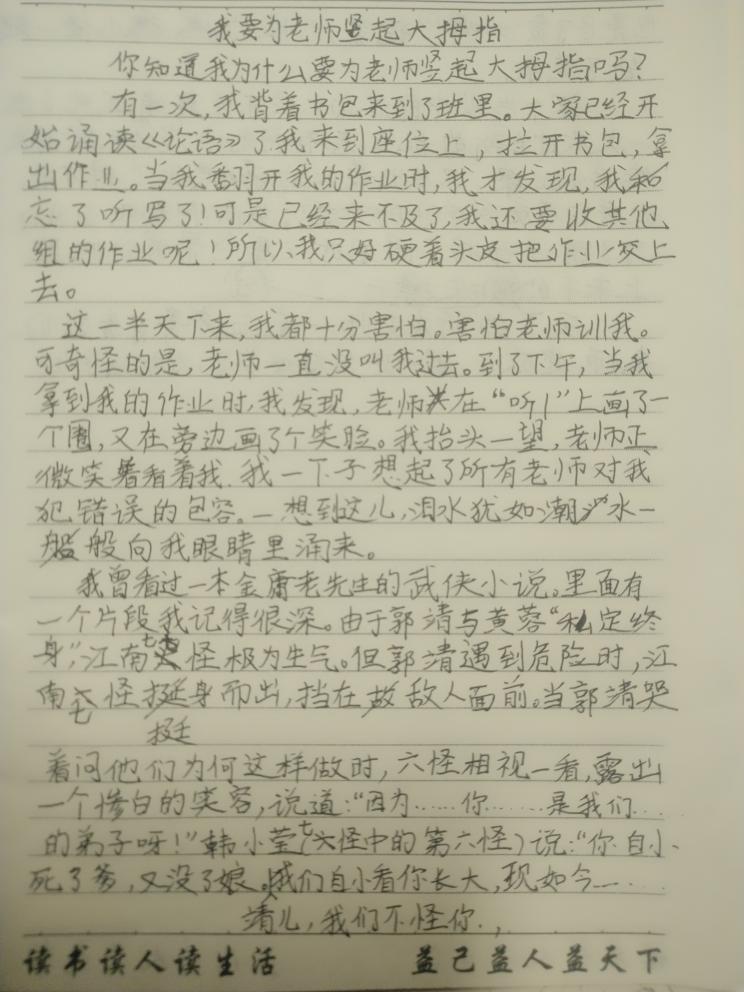 我要为老师竖起大拇指
你知道我为什么要为老师竖起大拇指吗?
有一次,我背着书包来到了班里。大家已经开
始诵读《论语》了.我来到座位上,拉开书包,拿
出作业。当我翻开我的作业时,我才发现,我
忘了听写了!可是已经来不及了,我还要收其他
组的作业呢!所以,我只好硬着头皮把作业交上
去。
这一半天下来,我都十分害怕。害怕老师训我。
可奇怪的是,老师一直没叫我过去。到了下午,当我
拿到我的作业时,我发现,老师在“听1”上画了一
个圈,又在旁边画了个笑脸。我抬头一望,老师正
微笑着看着我.我一下子想起了所有老师对我
犯错误的包容。一想到这儿,泪水犹如潮水一
般向我眼睛里涌来。
我曾看过一本金庸老先生的武侠小说。里面有
一个片段我记得很深。由于郭靖与黄蓉“私定终
身”,江南七怪极为生气。但郭靖遇到危险时,江
南七怪挺身而出,挡在敌人面前。当郭靖哭
着问他们为何这样做时,六怪相视一看,露出
一个惨白的笑容,说道:“因为……你……是我们…
的弟子呀!”韩小莹(七怪中的第六怪)说:“你自小
死了爹,又没了娘。我们自小看你长大,现如今……
靖儿,我们不怪你.,
读书读人读生活 益己益人益天下